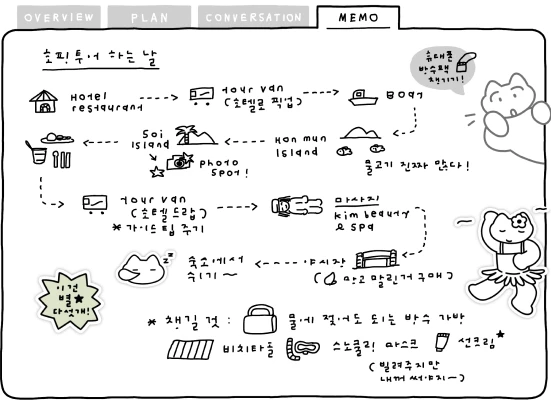 OVERVIEW
PLAN
CONVERSATION
MEMO
호핑투어 하는 날
휴대폰
방수팩
챙기기!
Hotel
restaurant
tour van
(호텔로 픽업)
BOAT
Soi
island
Hon mun
Island
photo
spot!
물고기 진짜 많다!
tour van
(호텔 드랍)
* 가이드 팁 주기
마사지
kim beauty
& spa
숙소에서
쉬기~
야시장
( 망고 말린거 구매)
이건
별★
다섯개!
* 챙길 것 :
물에 젖어도 되는 방수 가방
비치타올
스노쿨링 마스크
선크림★
(빌려주지만
내꺼 써야지~)